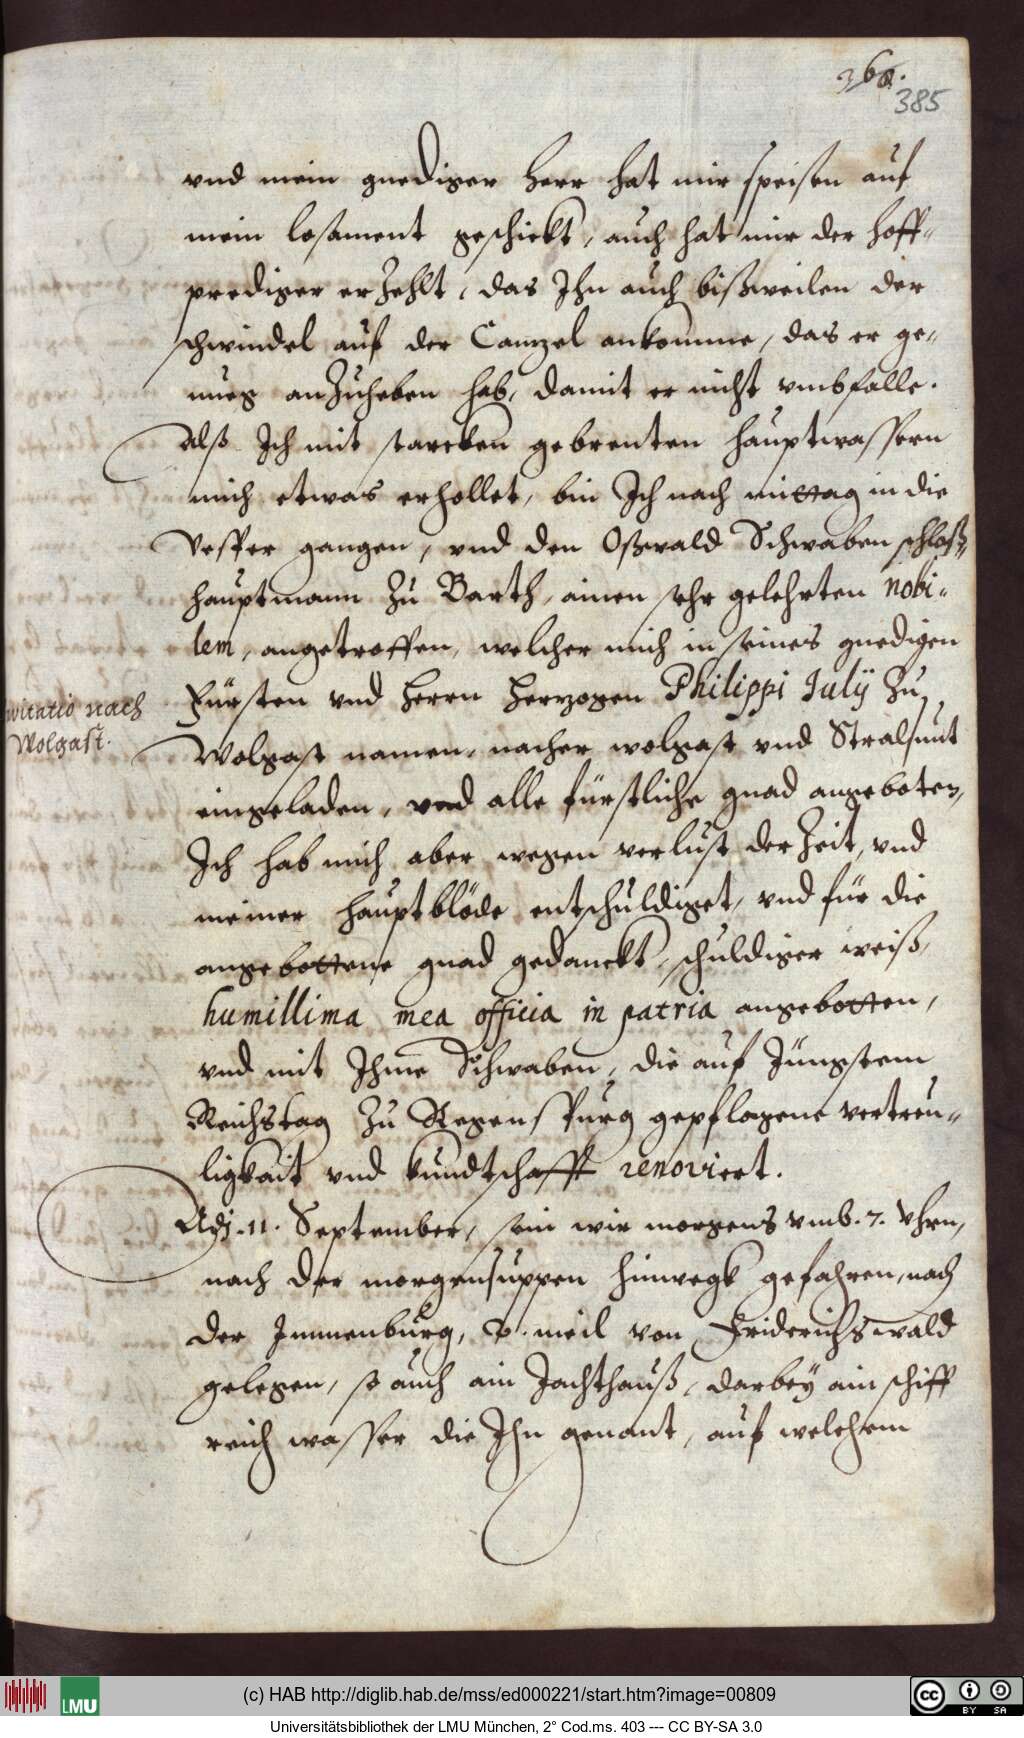 368.
385
vnd mein gnediger herr hat mir speisen auf
mein losament geschickt, auch hat mir der hoff-
prediger erzehlt, das Ihn auch bißweilen der
schwindel auf der Cantzel ankomme, das er ge-
nueg anzuheben hab, damit er nicht vmbfalle.
Alß Ich mit starcken gebrenten hauptwassern
mich etwas erhollet, bin Ich nach mittag in die
Vesper gangen, vnd den Oßwald Schwaben schloß-
hauptmann zu Barth, ainen sehr gelehrten nobi-
lem, angetroffen, welcher mich in seines gnedigen
Fürsten vnd herrn herzogen Philippi Julÿ zu
invitatio nach
Wolgast.
Wolgast namen, nacher wolgast vnd Stralsunt
eingeladen, vnd alle fürstliche gnad angeboten,
Ich hab mich aber wegen verlust der Zeit, vnd
meiner hauptblöde entschuldiget, vnd für die
angebottene gnad gedanckt, schuldiger weiß,
humillima mea officia in patria angebotten,
vnd mit Ihme Schwaben, die auf Jüngstem
Reichstag zu Regenspurg gepflogene vertreu-
ligkait vnd kundtschafft renoviert.
Adj. 11. September, sein wir morgens vmb. 7. Vhrn,
nach der morgensuppen hinwegk gefahren, nach
der Immenburg, 2. meil von Friderichswald
gelegen, so auch ain Jachthauß, darbey ain schiff
reich wasser die Ihn genant, auf welchem
(c) HAB http://diglib.hab.de/mss/ed000221/start.htm?image=00809
LMU
BY SA
Universitätsbibliothek der LMU München, 2° Cod.ms. 403 --- CC BY-SA 3.0